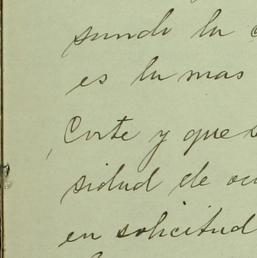 sando la
es la mas
Corte y que
sidad de
en solicitud